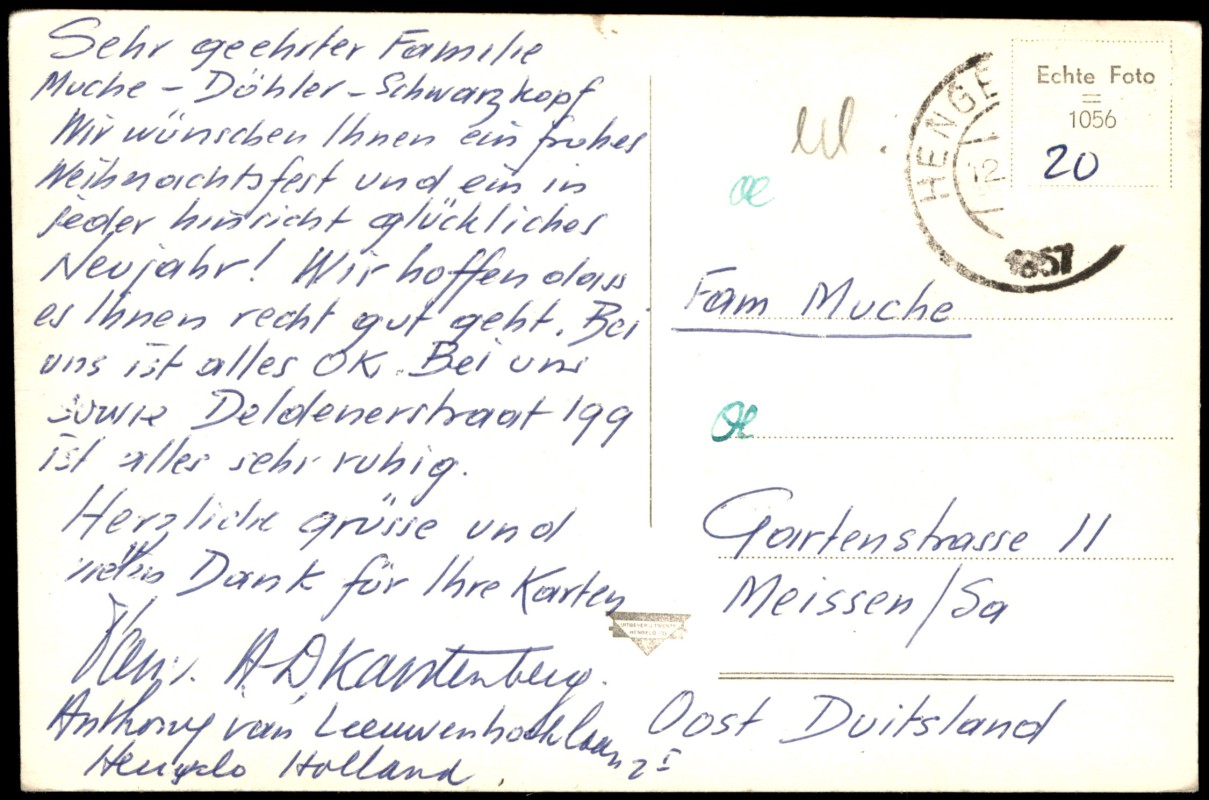 Sehr geehrter Familie
Muche - Döhler - Schwarzkopf
Wir wünschen Ihnen ein frohes
Weihnachtsfest und ein in
jeder hinsicht glückliches
Neujahr! Wir hoffen dass
es Ihnen recht gut geht. Bei
uns ist alles OK. Bei uns
sowie Deldenerstraat 199
ist alles sehr ruhig.
Herzliche grüsse und
vielen Dank für Ihre Karten
Fam. A. D. Kantenberg.
Anthony van Leeuwenhoeklaan 25
Hengelo Holland.
HENGE
12
1957
Echte Foto
1056
20
Fam Muche
Gartenstrasse 11
Meissen/Sa
Oost Duitsland